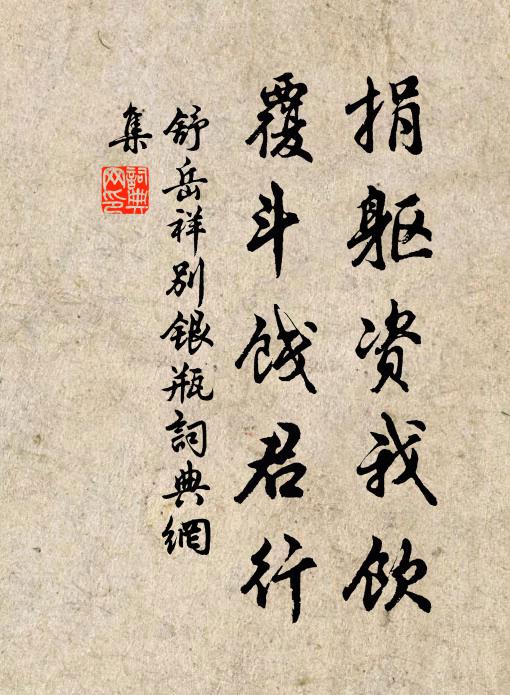 捐躯资我饮
覆斗饯君行
舒岳祥别银瓶詞典網
集
詞典网印